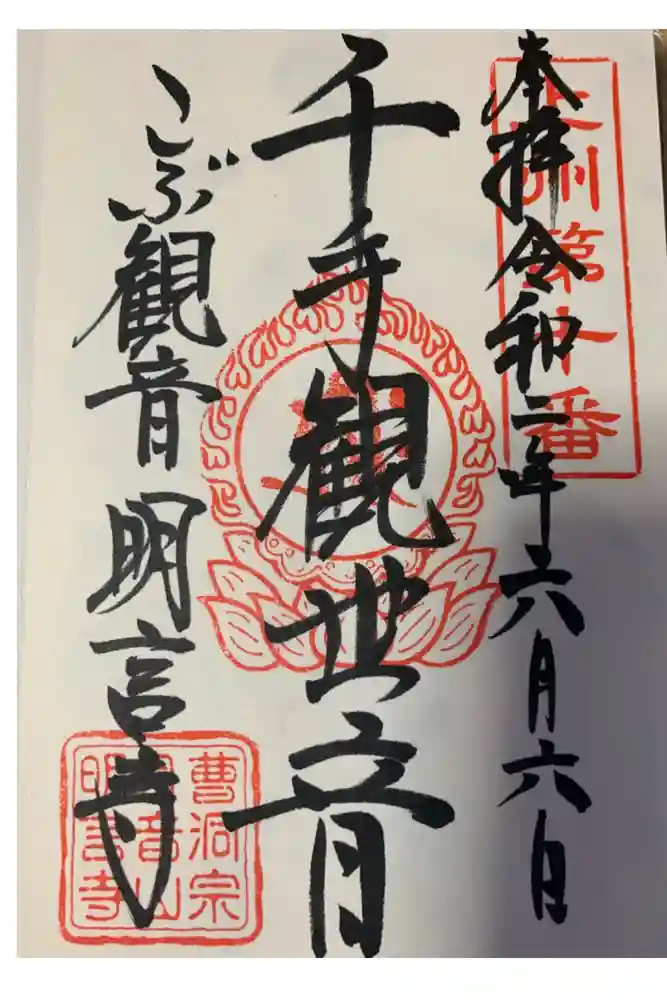 奉拝 令和二年六月六日
上州第十番
千手観世音
こぶ観音 明言寺
曹洞宗
観音山
明言寺